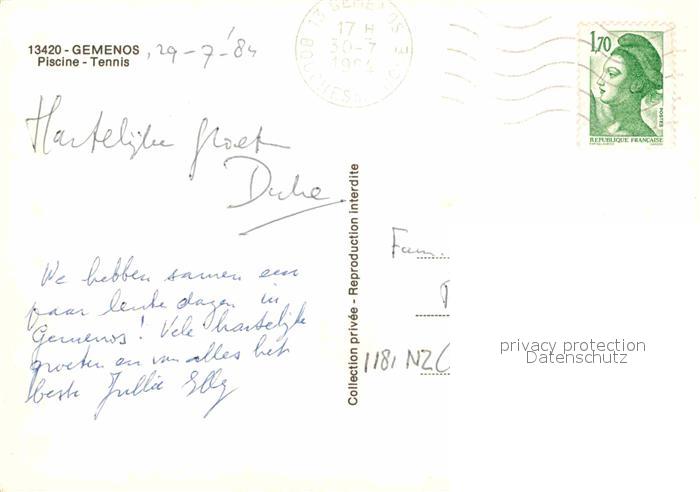 13420 - GEMENOS, 29-7-'84
Piscine - Tennis
13 GEMENOS
17 H
30-7
1984
BOUCHES DU RHONE
1,70
POSTES
REPUBLIQUE FRANÇAISE
Hartelijke groet
We hebben samen een
paar leuke dagen in
Gemenos! Vele hartelijke
groeten en van alles het
beste Jullie Elly
Collection privée - Reproduction interdite
Fam.
1181 NZC
privacy protection
Datenschutz